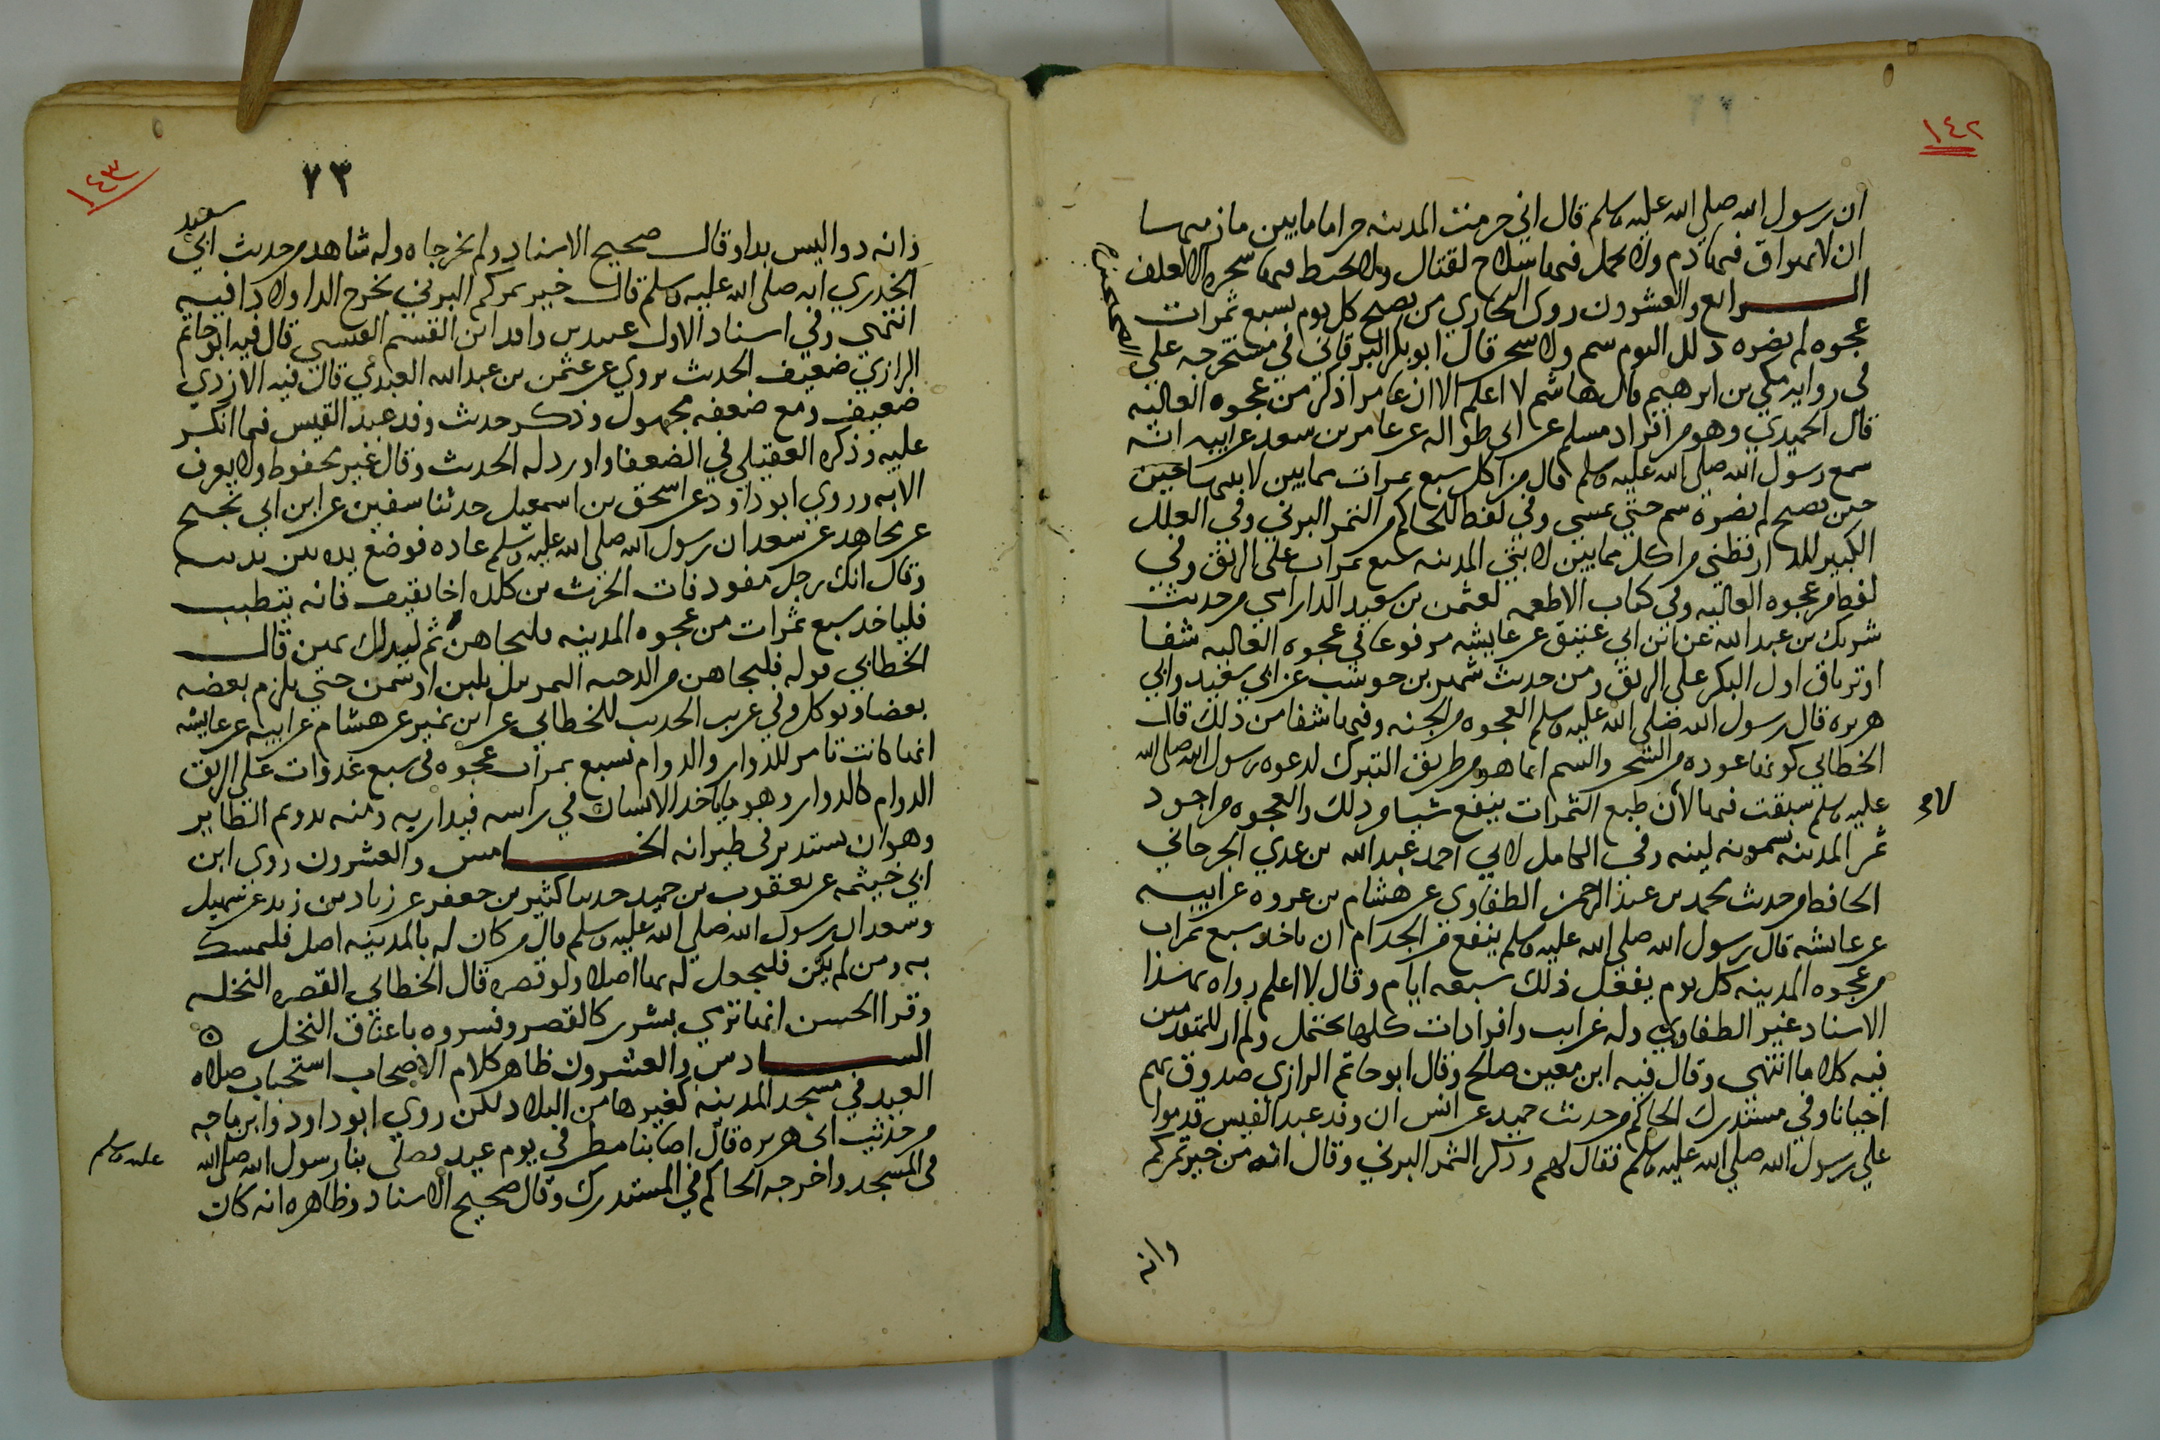 ١٤٢
ان رسول الله صلي الله عليه وسلم قال اني حرمت المدينه حراما ما بين مازميها
ان لا يهراق فيها دم ولا يحمل فيها سلاح لقتال ولا تخبط فيها شجره الا لعلف
الرابع والعشرون روي البخاري من تصبح كل يوم بسبع تمرات
عجوه لم يضره ذلك اليوم سم ولا سحر قال ابو بكر البرقاني في مستخرجه علي
الصحيحين
في روايه مكي بن ابرهيم قال هاشم لا اعلم الا ان عامرا ذكر من عجوه العاليه
قال الحميدي وهو من افراد مسلم عن ابي طواله عن عامر بن سعد عن ابيه انه
سمع رسول الله صلي الله عليه وسلم قال من اكل سبع تمرات مما بين لابتيها حين
حين يصبح لم يضره سم حتي يمسي وفي لفظ للحاكم من التمر البرني وفي العلل
الكبير للدارقطني من اكل مما بين لابتي المدينه سبع تمرات علي الريق وفي
لفظ من عجوه العاليه وفي كتاب الاطعمه لعثمن بن سعيد الدارامي من حديث
شريك بن عبد الله عن ابن ابي عتيق عن عايشه مرفوعا في عجوه العاليه شفا
او ترياق اول البكر علي الريق ومن حديث شهر بن حوشب عن ابي سعيد وابي
هريره قال رسول الله صلي الله عليه وسلم العجوه من الجنه وفيها شفا من ذلك قال
الخطابي كونها عوذه من السحر والسم انما هو من طريق التبرك لدعوه رسول الله صلي الله
عليه وسلم سبقت فيها لأن طبع التمرات ينفع شيا من ذلك والعجوه من اجود
لا
تمر المدينه يسمونه لينه وفي الكامل لابي احمد عبد الله بن عدي الجرجاني
الحافظ من حديث محمد بن عبد الرحمن الطفاوي عن هشام بن عروه عن ابيه
عن عائشه قال رسول الله صلي الله عليه وسلم ينفع من الجذام ان ياخذ سبع تمرات
من عجوه المدينه كل يوم يفعل ذلك سبعه ايام وقال لا اعلم رواه بهذا
الاسناد غير الطفاوي وله غرايب وافرادات كلها تحتمل ولم ار للمتقدمين
فيه كلاما انتهي وقال فيه ابن معين صالح وقال ابو حاتم الرازي صدوق يهم
احيانا وفي مستدرك الحاكم من حديث حميد عن انس ان وفد عبد القيس قدموا
علي رسول الله صلي الله عليه وسلم فقال لهم وذكر التمر البرني وقال انه من خير تمركم
وانه
١٤٣
٧٣
وانه دوا ليس بداء وقال صحيح الاسناد ولم يخرجاه وله شاهد من حديث ابي سعيد
الخدري انه صلي الله عليه وسلم قال خير تمركم البرني يخرج الدا ولا دا فيه
انتهي وفي اسناد الاول عبيد بن واقد ابن القسم القيسي قال فيه ابو حاتم
الرازي ضعيف الحديث يروي عن عثمن بن عبد الله العبدي قال فيه الازدي
ضعيف ومع ضعفه مجهول وذكر حديث وفد عبد القيس فيما انكر
عليه وذكره العقيلي في الضعفا واورد له الحديث وقال غير محفوظ ولا يعرف
الا به وروي ابو داود عن اسحق بن اسمعيل حدثنا سفين عن ابن ابي نجيح
عن مجاهد عن سعد ان رسول الله صلي الله عليه وسلم عاده فوضع يده بين ثدييه
وقال انك رجل مفود فات الحرث بن كلده اخا ثقيف فانه يتطبب
فلياخذ سبع تمرات من عجوه المدينه فليجاهن ثم ليدلك بهن قال
الخطابي قوله فليجاهن من الوجيه التمر يبل بلبن او سمن حتي يلزم بعضه
بعضا ويوكل وفي غريب الحديث للخطابي عن ابن نمير عن هشام عن ابيه عن عايشه
انها كانت تامر للدوار والدوام بسبع تمرات عجوه في سبع غدوات علي الريق
الدوام كالدوار وهو ما ياخذ الانسان في راسه فيدار به ومنه تدويم الطاير
وهو ان يستدير في طيرانه الخامس والعشرون روي ابن
ابي خيثمه عن يعقوب بن حميد حدثنا كثير بن جعفر عن زياد بن زيد عن سهيل
بن سعد ان رسول الله صلي الله عليه وسلم قال من كان له بالمدينه اصل فليمسك
به ومن لم يكن فليجعل له بها اصلا ولو قصره قال الخطابي القصره النخله
وقرا الحسن انها ترمي بشرر كالقصر وفسروه باعناق النخل ٥
السادس والعشرون ظاهر كلام الاصحاب استحباب صلاه
العيد في مسجد المدينه كغيرها من البلاد لكن روي ابو داود وابن ماجه
من حديث ابي هريره قال اصابنا مطر في يوم عيد فصلي بنا رسول الله صلي الله
عليه وسلم
في المسجد واخرجه الحاكم في المستدرك وقال صحيح الاسناد وظاهره انه كان